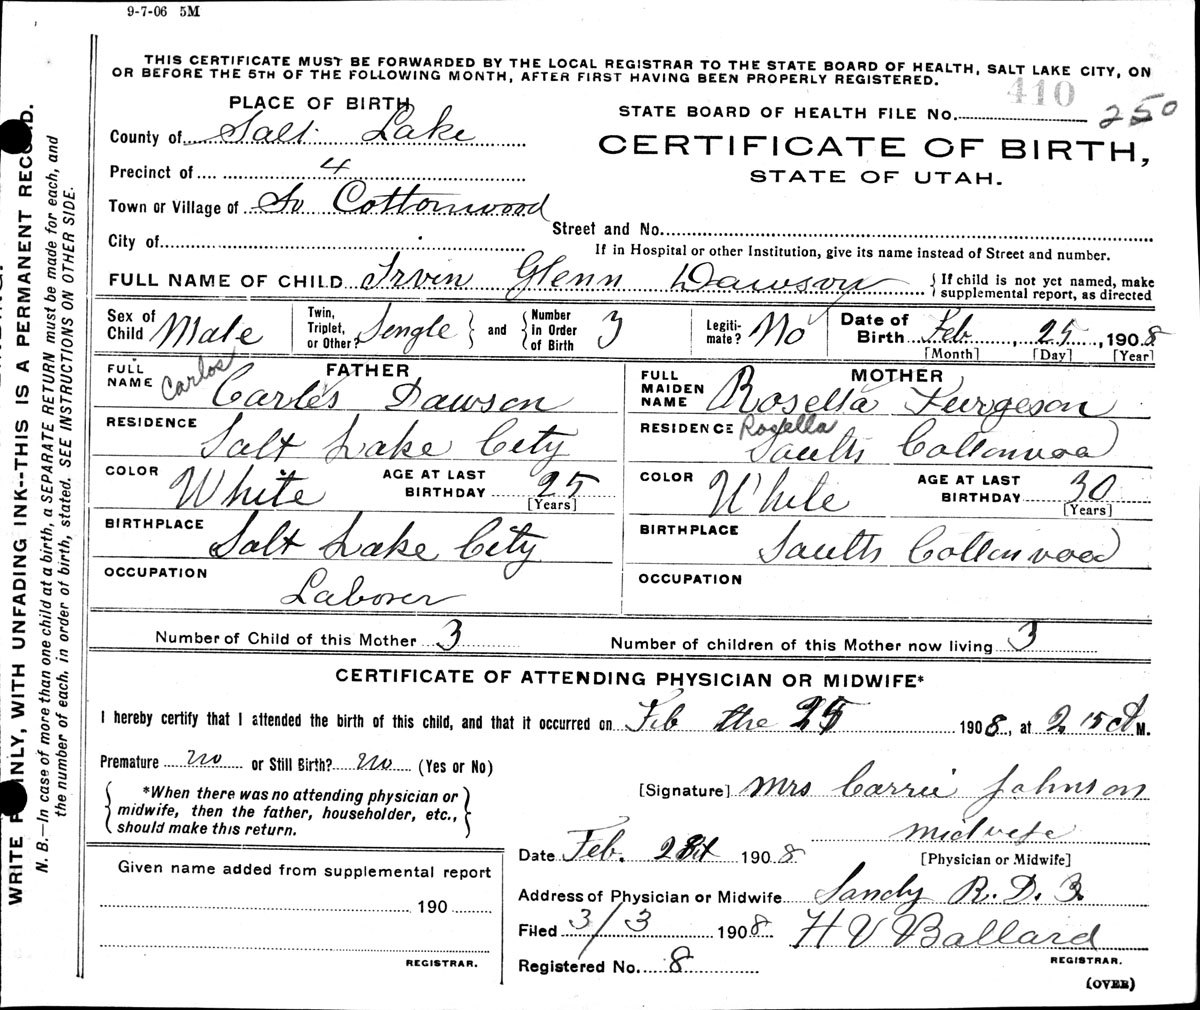 9-7-06 5M
THIS CERTIFICATE MUST BE FORWARDED BY THE LOCAL REGISTRAR TO THE STATE BOARD OF HEALTH, SALT LAKE CITY, ON
OR BEFORE THE 5TH OF THE FOLLOWING MONTH, AFTER FIRST HAVING BEEN PROPERLY REGISTERED.
410
PLACE OF BIRTH
STATE BOARD OF HEALTH FILE No. 250
County of Salt Lake
CERTIFICATE OF BIRTH,
STATE OF UTAH.
Precinct of 4
Town or Village of So Cottonwood
Street and No.
City of
If in Hospital or other Institution, give its name instead of Street and number.
FULL NAME OF CHILD Irvin Glenn Dawson
{If child is not yet named, make
supplemental report, as directed
Sex of Child Male
Twin, Triplet, or Other? Sengle } and { Number in Order of Birth 3
Legiti-mate? No
Date of Birth Feb, 25, 1908
[Month] [Day] [Year]
FATHER
FULL NAME Carles Dawson
Carlos
RESIDENCE Salt Lake City
COLOR White
AGE AT LAST BIRTHDAY 25
[Years]
BIRTHPLACE Salt Lake City
OCCUPATION Laborer
MOTHER
FULL MAIDEN NAME Rosella Furgeson
Rosella
RESIDENCE Saulth Cottonwood
COLOR White
AGE AT LAST BIRTHDAY 30
[Years]
BIRTHPLACE Saulth Cottonwood
OCCUPATION
Number of Child of this Mother 3
Number of children of this Mother now living 3
CERTIFICATE OF ATTENDING PHYSICIAN OR MIDWIFE*
I hereby certify that I attended the birth of this child, and that it occurred on Feb the 25 1908, at 2.15 A M.
Premature no or Still Birth? no (Yes or No)
{*When there was no attending physician or
midwife, then the father, householder, etc.,
should make this return.}
[Signature] Mrs Carrie Johnson
midwife
[Physician or Midwife]
Date Feb. 28 1908
Given name added from supplemental report
190
REGISTRAR.
Address of Physician or Midwife Sandy R. D. 3.
Filed 3/3 1908
H V Ballard
REGISTRAR.
Registered No. 8
(OVER)
WRITE PLAINLY, WITH UNFADING INK--THIS IS A PERMANENT RECORD.
N. B.—In case of more than one child at a birth, a SEPARATE RETURN must be made for each, and
the number of each, in order of birth, stated. SEE INSTRUCTIONS ON OTHER SIDE.